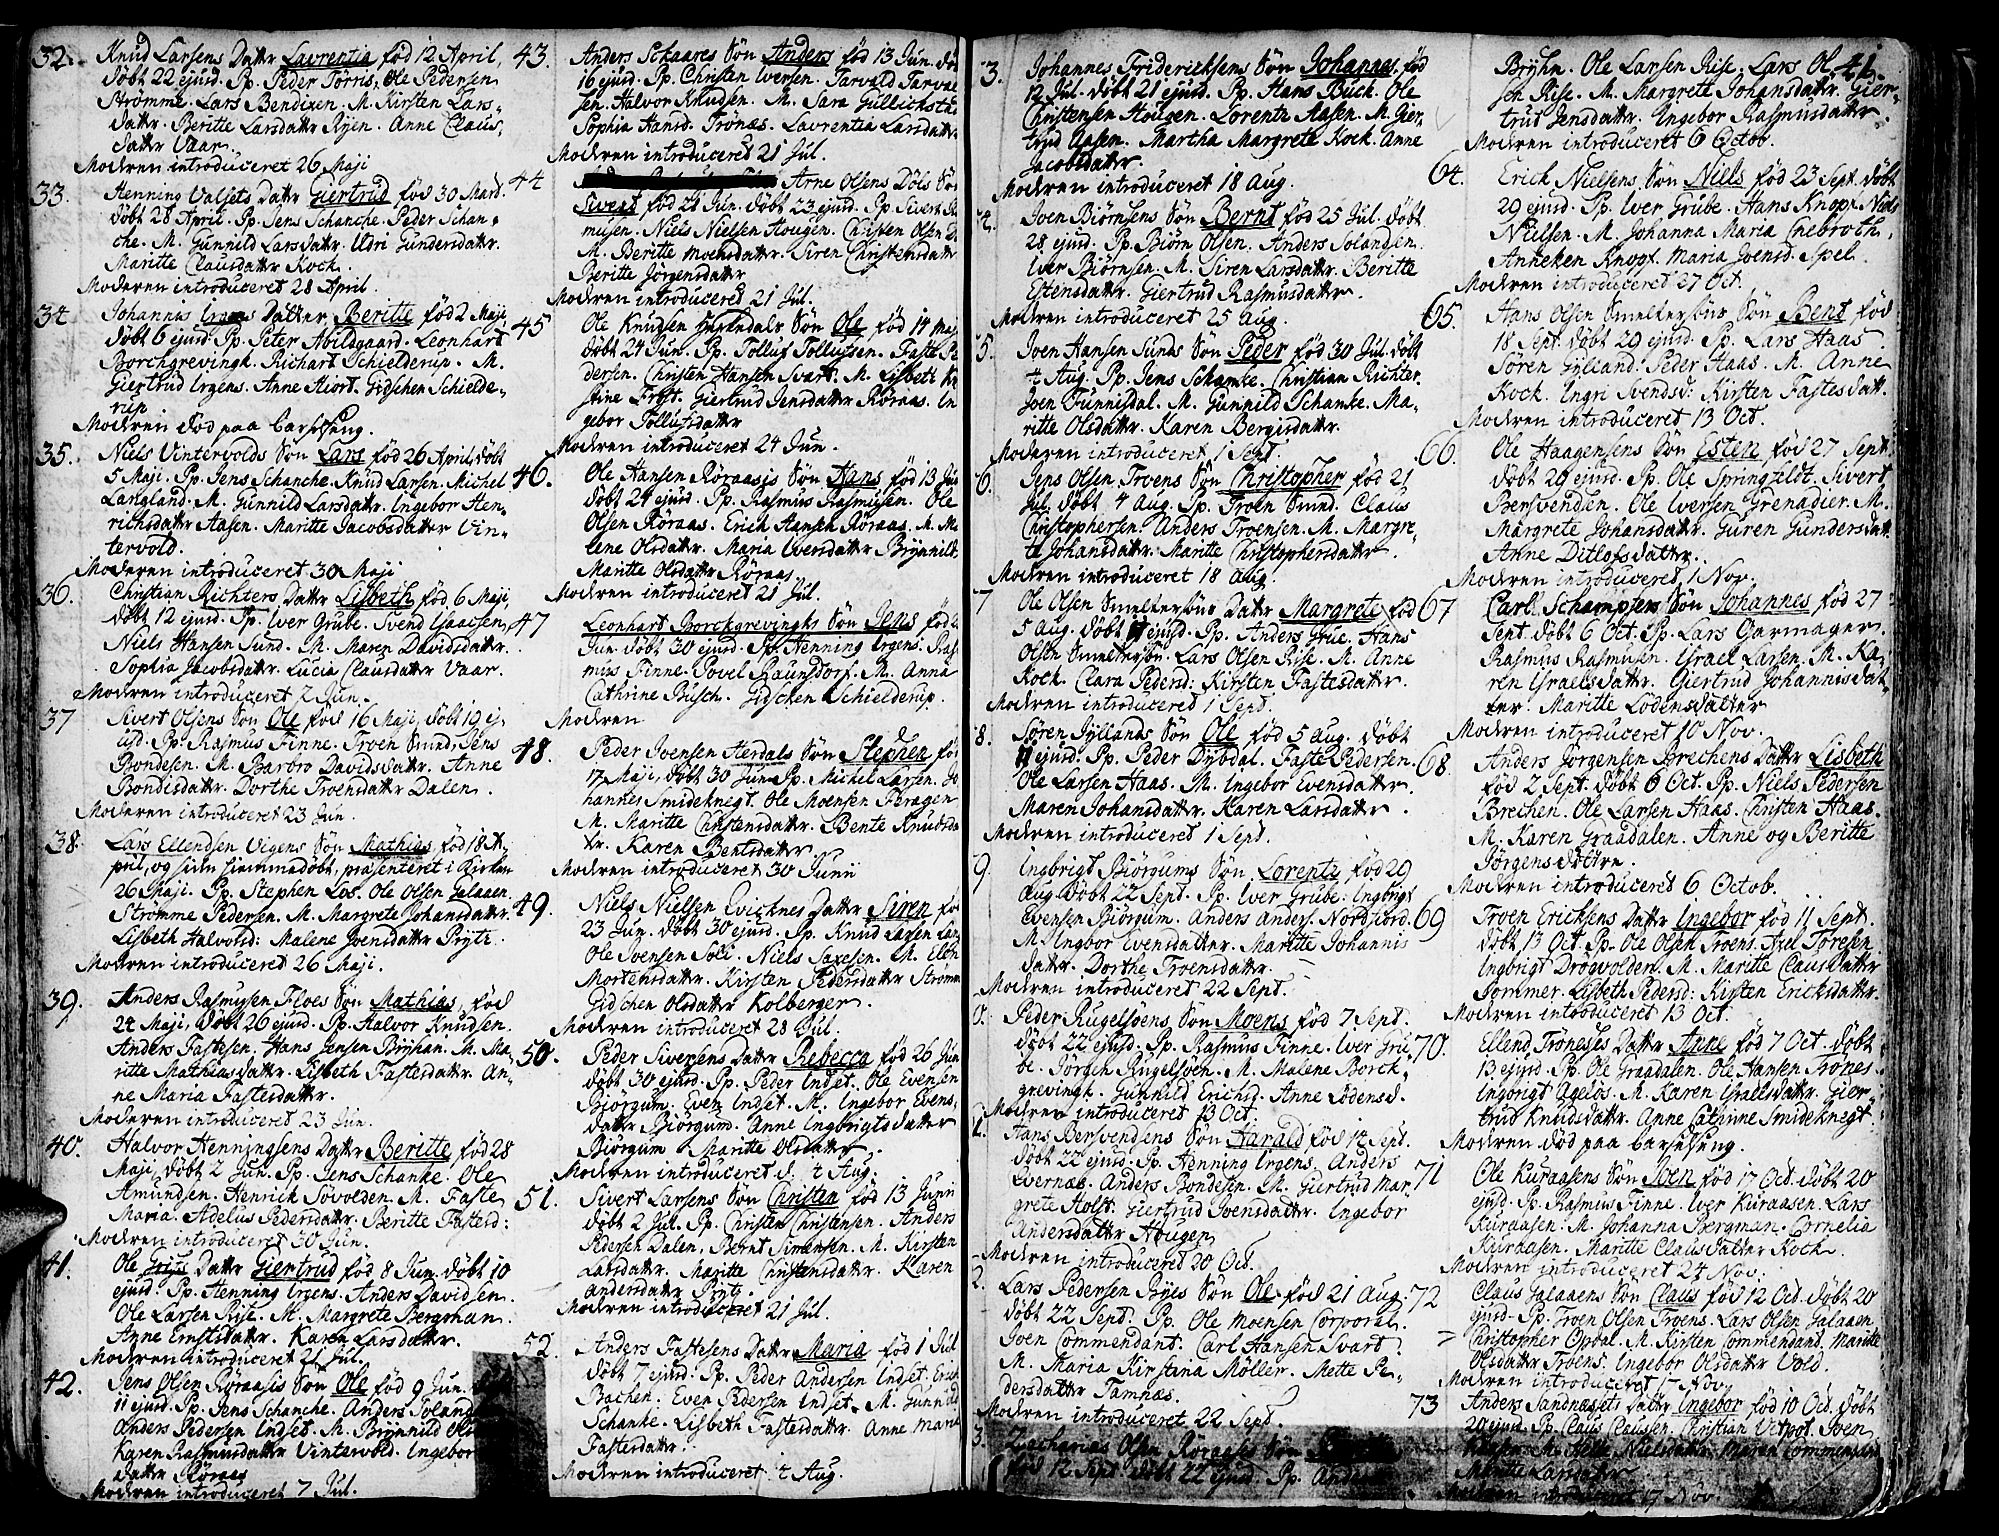 32. Knud Larsens Datter Lavrentia föd 12 April,
döbt 22 ejusd. Pp. Peder Törris, Ole Pedersen
Strömme. Lars Bendixen. M. Kirsten Lars-
datter. Beritte Larsdatter Ryen. Anne Claus,
datter Vaar.
Moderen introduceret 26 Maji
33. Henning Valsets Datter Giertrud föd 30 Mart.
döbt 28 April. Pp. Jens Schanche. Peder Schan-
che. M. Gunnild Larsdatter. Eldri Gundersdatter.
Maritte Clausdatter Kock.
Moderen introduceret 28 April.
34. Johannis Irgens Datter Beritte föd 2 Maji
döbt 6 ejusd. Pp. Peter Abildgaard. Leonhart
Borchgrevingk. Richart Schielderup. M.
Giertrud Irgens. Anne Hiort. Gidschen Schielde-
rup
Moderen död paa barselseng.
35. Niels Vintervolds Sön Lars föd 26 April, döbt
5 Maji. Pp. Jens Schanche. Knud Larsen. Michel
Langland. M. Gunnild Larsdatter. Ingebor Hen-
richsdatter Aasen. Maritte Jacobsdatter Vin-
tervold.
Moderen introduceret 30 Maji
36. Christian Richters Datter Lisbeth föd 6 Maji,
döbt 12 ejusd. Pp. Iver Grube. Svend Isaacsen,
Niels Hansen Sund. M. Maren Davidsdatter.
Sophia Jacobsdatter. Lucia Clausdatter Vaar.
Moderen introduceret 7 Jun.
37 Sivert Olsens Sön Ole föd 16 Maji, döbt 19 ej-
usd. Pp. Rasmus Finne. Troen Smed, Jens
Bondesen. M. Barbro Davidsdatter. Anne
Bondisdatter. Dorthe Troensdatter Dalen.
Moderen introduceret 23 Jun.
38. Lars Ellendsen Vigens Sön Mathias föd 18 A-
pril, og siden hiemmedöbt, præsenteret i Kirken
26 Maji. Pp. Stephen Los. Ole Olsen Galaaen.
Strömme Pedersen. M. Margrete Johansdatter.
Lisbeth Halvorsd: Malene Joensdatter Prytz.
Moderen introduceret 26 Maji.
39. Anders Rasmusen Floes Sön Mathias, föd
24 Maji, döbt 26 ejusd. Pp. Halvor Knudsen.
Anders Fastesen, Hans Jensen Bryhan. M. Ma-
ritte Mathiasdatter. Lisbeth Fastesdatter. An-
ne Maria Fastesdatter.
Moderen introduceret 23 Jun.
40. Halvor Henningsens Datter Beritte föd 28
Maji, döbt 2 Jun. Pp. Jens Schanke. Ole
Amundsen. Henrick Sövolden. M. Faste
Maria. Adelus Pedersdatter. Beritte Fastesd:
Moderen introduceret 30 Jun.
41. Ole Datter Giertrud föd 8 Jun. döbt 10
ejusd. Pp. Henning Irgens. Anders Davidsen.
Ole Larsen Rise. M. Margrete Bergman.
Anne Ernstsdatter. Karen Larsdatter.
Moderen introduceret 21 Jul.
42. Jens Olsen Röraasis Sön Ole föd 9 Jun.
11 ejusd. Pp. Jens Schanche. Anders Soland
Anders Pedersen Indset. M. Brynnild Ols
Karen Rasmusdatter Vintervold. Ingebor
datter Röraas
Moderen introduceret 7 Jul.
43. Anders Sckaares Sön Anders föd 13 Jun. dö
16 ejusd. Pp. Christen Iversen. Tarvald Tarval
sen. Halvor Knudsen. M. Sara Gullichsd
Sophia Hansd. Trönæs. Lavrentia Larsdatter
Moderen introduceret 21 Jul.
44 Arne Olsens Döls Sön
Sivert föd 21 Jun. döbt 23 ejusd. Pp. Sivert Ra
musen. Niels Nielsen Hougen. Christen Olsen
M. Beritte Moensdatter. Siren Christensdatter
Beritte Jörgensdatter
Moderen introduceret 21 Jul.
45 Ole Knudsen Sön Ole föd 14 Maj
döbt 24 Jun. Pp. Tolluf Tollufsen. Faste Pe
dersen. Christen Hansen Svart. M. Lisbeth Kr
stine Fryt. Giertrud Jensdatter Röraas. In
gebor Tollufsdatter
Moderen introduceret 24 Jun.
46. Ole Hansen Röraasis Sön Hans föd 13 Jun
döbt 24 ejusd. Pp. Rasmus Rasmusen. Ole
Olsen Röraas. Erick Hansen Röraas. M. Ma
lene Olsdatter. Maria Iversdatter Brynnild
Maritte Olsdatter Röraas.
Moderen introduceret 21 Jul.
47 Leonhart Borckgrevingks Sön Jens föd 2
Jun. döbt 30 ejusd. Pp. Henning Irgens. Ras
mus Finne. Povel Raunsdorf. M. Anna
Cathrine Busch. Gidscken Schielderup.
Moderen
48. Peder Joensen Herdals Sön Stephen föd
17 Maji, döbt 30 Jun. Pp. Michel Larsen. Jo
hannes Smideknegt. Ole Moensen Sbragen
M. Maritte Christensdatter. Bente Knudsda
tr. Karen Bentsdatter
Moderen introduceret 30 Junii
49. Niels Nielsen Qvicknes Datter Siren fö
23 Jun. döbt 30 ejusd. Pp. Knud Larsen Lan
Ole Svensen Soli. Niels Saxesen. M. Elen
Mortensdatter. Kirsten Pedersdatter Strömm
Gidschen Olsdatter Kolberger.
Moderen introduceret 28 Jul.
50. Peder Siversens Datter Rebecca föd 26 Jun
döbt 30 ejusd. Pp. Peder Indset. Ole Evensen
Biörgum. Even Indset. M. Ingebor Evens-
datter Biörgum. Anne Ingbrigtsdatter
Biörgum Maritte Olsdatter
Moderen introduceret d. 4 Aug.
51. Sivert Larsens Sön Christen föd 13 Junii
döbt 2 Jul. Pp. Christen Christensen. Anders
Pedersen Dalen, Bernt Simensen. M. Kirsten
Larsdatter. Maritte Christensdatter. Karen
Andersdatter Prytz.
Moderen introduceret 21 Jul.
52. Anders Fastesens Datter Maria föd 1 Jul
döbt 7 ejusd. Pp. Peder Andersen Indset. Erick
Bachen. Even Pedersen Indset. M. Gunnild
Schanke. Lisbeth Fastesdatter. Anne Maria
Fastesdatter.
Moderen introduceret 4 Aug.
3. Johannes Fridericksens Sön Johannes. föd
12 Jul. döbt 21 ejusd. Pp. Hans Buck. Ole
Christensen Hougen. Lorentz Aasen. M. Gier-
trud Aasen. Martha Margrete Kock. Anne
Jacobsdatter
Moderen introduceret 18 Aug.
4. Joen Biörnsens Sön Bernt föd 25 Jul. döbt
28 ejusd. Pp. Biörn Olsen. Anders Solandsen.
Iver Biörnsen. M. Siren Larsdatter. Beritte
Estensdatter. Giertrud Rasmusdatter.
Moderen introduceret 25 Aug.
5. Joen Hansen Sunds Sön Peder föd 30 Jul. döbt
4 Aug. Pp. Jens Schanke. Christian Richter.
Joen Funnisdal. M. Gunnild Schanke. Ma-
ritte Olsdatter. Karen Bergisdatter.
Moderen introduceret 1 Sept.
6. Jens Olsen Troens Sön Christopher föd 21
Jul. döbt 4 Aug. Pp. Troen Smed. Claus
Christophersen Anders Troensen. M. Margre-
te Johansdatter. Maritte Christophersdatter.
Moderen introduceret 18 Aug.
7 Ole Olsen Smelterbus Datter Margrete föd
5 Aug. döbt 11 ejusd. Pp. Anders Grue. Hans
Olsen Smelterbu. Lars Olsen Rise. M. Anne
Kock. Clara Pedersd: Kirsten Fastesdatter.
Moderen introduceret 1 Sept.
8. Sören Jyllands Sön Ole föd 5 Aug. döbt
11 ejusd. Pp. Peder Dybdal. Faste Pedersen.
Ole Larsen Haas. M. Ingebor Evensdatter.
Maren Johansdatter. Karen Larsdatter.
Moderen introduceret 1 Sept.
9. Ingbrigt Biörgums Sön Lorentz föd 29
Aug döbt 22 Sept. Pp. Iver Grube. Ingbrigt
Evensen Biörgum. Anders Anders. Nordfiord.
M. Ingbor Evensdatter. Maritte Johannis
datter. Dorthe Troensdatter.
Moderen introduceret 22 Sept.
0. Peder Rugelsöens Sön Moens föd 7 Sept.
döbt 22 ejusd. Pp. Rasmus Finne. Iver Gru-
be. Jörgen Rugelsöen. M. Malene Borck-
grevingk. Gunnild Ericksd. Anne Lödensd.
Moderen introduceret 13 Oct.
1. Hans Bersvendsens Sön Harald föd 14 Sept.
döbt 22 ejusd. Pp. Henning Irgens. Anders
Evernæs. Anders Bondesen. M. Giertrud Mar-
grete Holst. Giertrud Svensdatter. Ingebor
Andersdatter Hougen.
Moderen introduceret 20 Oct.
2. Lars Pedersen Byes Sön Ole föd 21 Aug.
döbt 22 Sept. Pp. Ole Moensen Corporal.
Joen Commendant. Carl Hansen Svart.
M. Maria Kirstina Möller. Mette Pe-
dersdatter Tamnæs.
Moderen introduceret 22 Sept.
3. Zacharias Olsen Röraases Sön
föd 12 Sept. döbt 22 ejusd. Pp. Anders
41.
Bryhn. Ole Larsen Rise. Lars Ol
sen Rise. M. Margrete Johansdatter. Gier-
trud Jensdatter. Ingebor Rasmusdatter
Moderen introduceret 6 Octob.
64. Erick Nielsens Sön Niels föd 23 Sept. döbt
29 ejusd. Pp. Iver Grube. Hans Knopf. Niels
Nielsen. M. Johanna Maria Chebroth.
Anneken Knopf. Maria Joensd. Spel.
Moderen introduceret 27 Oct.
65. Hans Olsen Smelterbus Sön Bent föd
18 Sept. döbt 29 ejusd. Pp. Lars Haas.
Sören Jylland. Peder Haas. M. Anne
Kock. Ingri Svendsd: Kirsten Fastesdatt.
Moderen introduceret 13 Oct.
66. Ole Haagensens Sön Esten föd 27 Sept
döbt 29 ejusd. Pp. Ole Springfeldt. Sivert
Bersvendsen. Ole Iversen Grenadier. M.
Margrete Johansdatter. Guren Gundersdatt.
Anne Ditlofsdatter.
Moderen introduceret 1 Nov.
67 Carl Schampsens Sön Johannes föd 27
Sept. döbt 6 Oct. Pp. Lars Garmager.
Rasmus Rasmusen. Israel Larsen. M. Ka-
ren Israelsdatter. Giertrud Johannisdat-
ter. Maritte Lodensdatter
Moderen introduceret 10 Nov.
68. Anders Jorgensen Brechens Datter Lisbeth
föd 2 Sept. döbt 6 Oct. Pp. Niels Pedersen
Brechen. Ole Larsen Haas. Christen Haas.
M. Karen Graadalen. Anne og Beritte
Jörgensdötre.
Moderen introduceret 6 Octob.
69 Troen Ericksens Datter Ingebor föd 11 Sept.
döbt 13 Oct. Pp. Ole Olsen Troens. Axel Toresen
Ingbrigt Drögvolden. M. Maritte Clausdatter
Sommer. Lisbeth Pedersd: Kirsten Ericksdatter.
Moderen introduceret 13 Oct.
70. Ellend Tröneses Datter Anne föd 7 Oct. döbt
13 ejusd. Pp. Ole Graadalen. Ole Hansen Trönes.
Ingbrigt Ageløs. M. Karen Israelsdatter. Gier-
trud Knudsdatter. Anne Cathrine Smideknegt.
Moderen död paa barselseng.
71 Ole Kuraasens Sön Joen föd 17 Oct. döbt 20
ejusd. Pp. Rasmus Finne. Iver Kuraasen. Lars
Kuraasen. M. Johanna Bergman. Cornelia
Kuraasen. Maritte Clausdatter Kock.
Moderen introduceret 24 Nov.
72 Claus Galaaens Sön Claus föd 12 Oct. döbt 20
ejusd. Pp. Troen Olsen Troens. Lars Olsen Galaaen.
Christopher Opdal. M. Kirsten Commendant. Maritte
Olsdatter Troens. Ingebor Olsdatter Vold.
Moderen introduceret 17 Nov.
73 Anders Sandnesets Datter Ingebor föd 10 Oct. döbt
20 ejusd. Pp. Claus Claussen. Christian Joen
M. Nielsdatter. Maren Commendant
Maritte Larsdatter
Moderen introduceret 17 Nov.